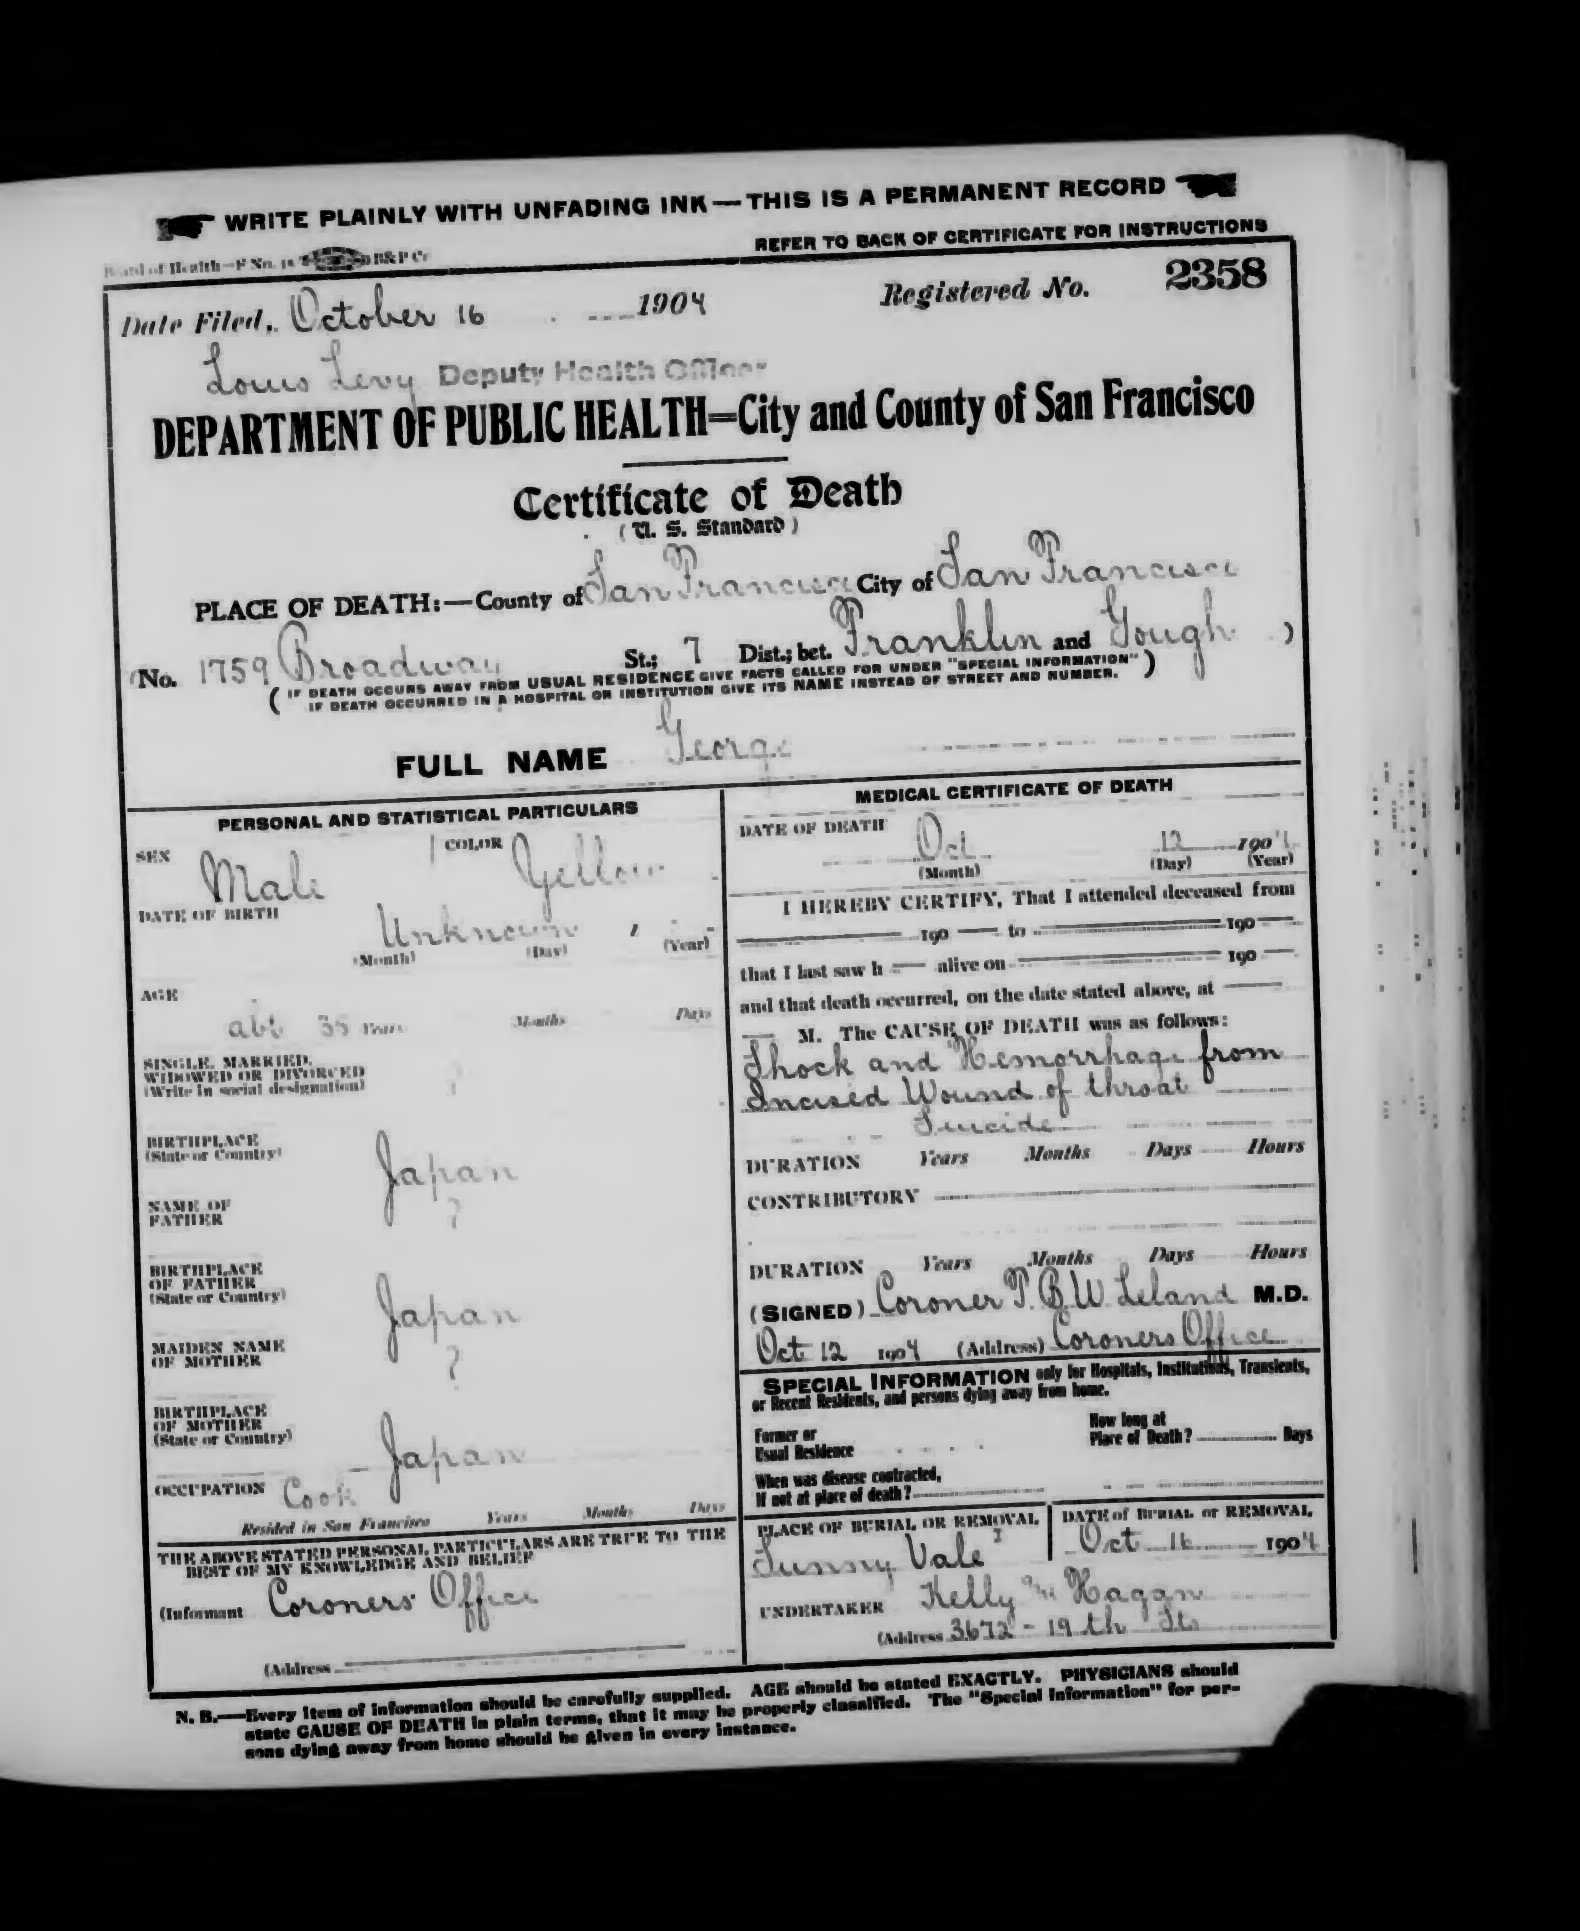 WRITE PLAINLY WITH UNFADING INK — THIS IS A PERMANENT RECORD
REFER TO BACK OF CERTIFICATE FOR INSTRUCTIONS
Board of Health—F No. B&P Co
Date Filed, October 16 1904 Registered No. 2358
Louis Levy Deputy Health Officer
DEPARTMENT OF PUBLIC HEALTH=City and County of San Francisco
Certificate of Death
( U. S. Standard )
PLACE OF DEATH:—County of San Francisco City of San Francisco
(No. 1759 Broadway St.; 7 Dist.; bet. Franklin and Gough )
( IF DEATH OCCURS AWAY FROM USUAL RESIDENCE GIVE FACTS CALLED FOR UNDER "SPECIAL INFORMATION" )
IF DEATH OCCURRED IN A HOSPITAL OR INSTITUTION GIVE ITS NAME INSTEAD OF STREET AND NUMBER.
FULL NAME George
PERSONAL AND STATISTICAL PARTICULARS
SEX Male COLOR Yellow
DATE OF BIRTH
Unknown
(Month) (Day) (Year)
AGE
abt 35 Years Months Days
SINGLE, MARRIED,
WIDOWED OR DIVORCED ?
(Write in social designation)
BIRTHPLACE
(State or Country) Japan
NAME OF
FATHER ?
BIRTHPLACE
OF FATHER
(State or Country) Japan
MAIDEN NAME
OF MOTHER ?
BIRTHPLACE
OF MOTHER
(State or Country) Japan
OCCUPATION Cook
Resided in San Francisco Years Months Days
THE ABOVE STATED PERSONAL PARTICULARS ARE TRUE TO THE
BEST OF MY KNOWLEDGE AND BELIEF
(Informant Coroners Office
(Address
MEDICAL CERTIFICATE OF DEATH
DATE OF DEATH
Oct 12 1904
(Month) (Day) (Year)
I HEREBY CERTIFY, That I attended deceased from
190 to 190
that I last saw h alive on 190
and that death occurred, on the date stated above, at
M. The CAUSE OF DEATH was as follows:
Shock and Hemorrhage from
Incised Wound of throat
Suicide
DURATION Years Months Days Hours
CONTRIBUTORY
DURATION Years Months Days Hours
(SIGNED) Coroner T. B. W. Leland M.D.
Oct 12 1904 (Address) Coroners Office
SPECIAL INFORMATION only for Hospitals, Institutions, Transients,
or Recent Residents, and persons dying away from home.
Former or
Usual Residence
How long at
Place of Death? Days
When was disease contracted,
If not at place of death?
PLACE OF BURIAL OR REMOVAL
Sunny Vale
DATE of BURIAL or REMOVAL
Oct 16 1904
UNDERTAKER Kelly and Hagan
(Address 3672 - 19th St
N. B.—Every item of information should be carefully supplied. AGE should be stated EXACTLY. PHYSICIANS should
state CAUSE OF DEATH in plain terms, that it may be properly classified. The "Special Information" for per-
sons dying away from home should be given in every instance.